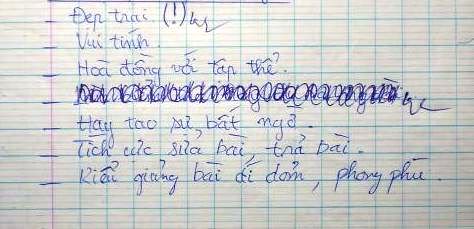 - Đẹp trai (!)
- Vui tính.
- Hoà đồng với tập thể.
- Hay tạo sự bất ngờ.
- Tích cực sửa bài, trả bài.
- Kiểu giảng bài dí dỏm, phong phú.